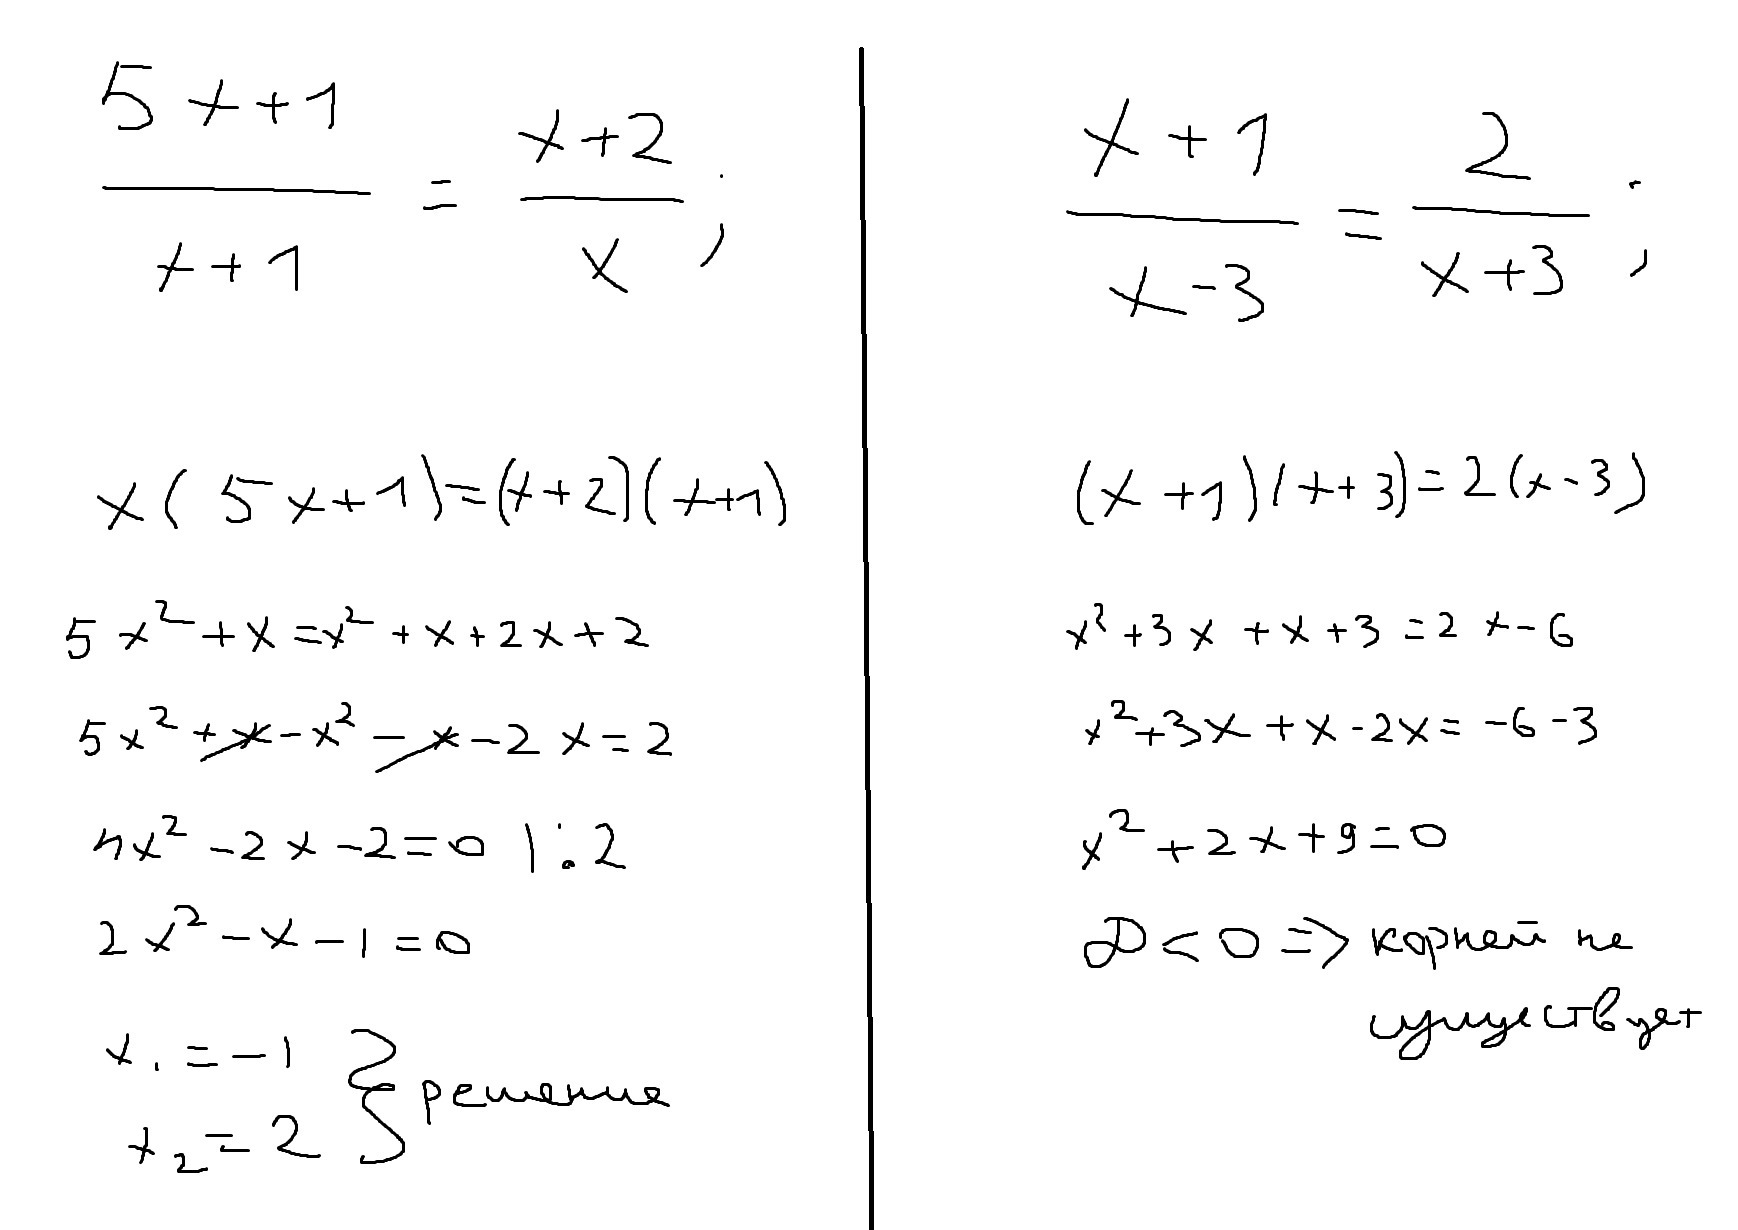 (5x+1)/(x+1) = (x+2)/x ;
x(5x+1)=(x+2)(x+1)
5x²+x=x²+x+2x+2
5x²+x-x²-x-2x=2
4x²-2x-2=0 |:2
2x²-x-1=0
x₁=-1
x₂=2
} решение
(x+1)/(x-3) = 2/(x+3) ;
(x+1)(x+3)=2(x-3)
x²+3x+x+3=2x-6
x²+3x+x-2x=-6-3
x²+2x+9=0
D<0 => корней не
существует